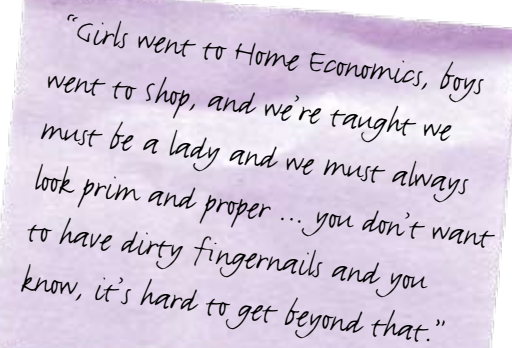 “Girls went to Home Economics, boys
went to shop, and we’re taught we
must be a lady and we must always
look prim and proper ... you don’t want
to have dirty fingernails and you
know, it’s hard to get beyond that.”